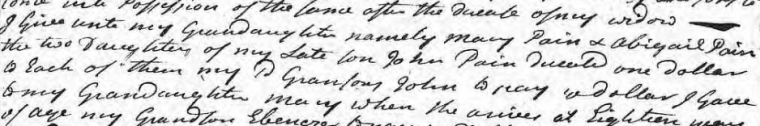 come into Possession of the same after the decease of my widow
I Give unto my Grandaughter namely mary Pain & Abigail Pain
the two Daughters of my Late son John Pain Deceased one dollar
to Each of them my sd Gransons John to pay a dollar I Gave
to my Grandaughter mary when she arives at Eighteen years
of age my Grandson Ebenezer